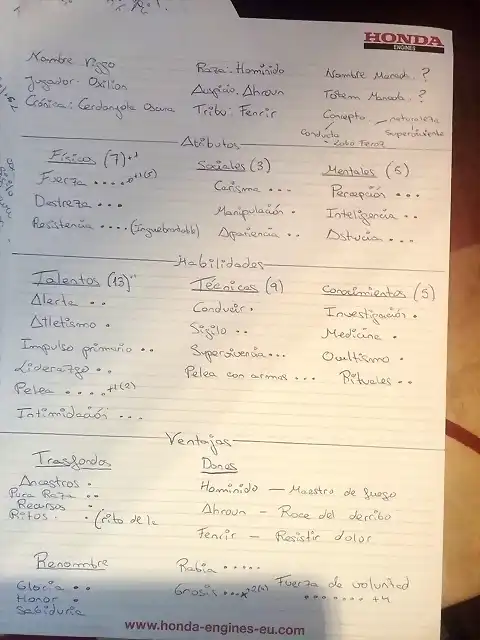 HONDA
ENGINES
Nombre Viggo Raza: Homínido Nombre Manada: ?
Jugador: Oxilion Auspicio: Ahroun Totem Manada: ?
Crónica: Cerdanyola Oscura Tribu: Fenrir Concepto - naturaleza
Conducta Superviviente
- Lobo Feroz
Atributos
Físicos (7)+1 Sociales (3) Mentales (5)
Fuerza •••• Carisma ••• Percepción •••
Destreza ••• Manipulación • Inteligencia ••
Resistencia •••• (Inquebrantable) Apariencia •• Astucia •••
Habilidades
Talentos (13) Técnicas (9) Conocimientos (5)
Alerta •• Conducir • Investigación •
Atletismo • Sigilo •• Medicina •
Impulso primario •• Supervivencia ••• Ocultismo •
Liderazgo •• Pelea con armas ••• Rituales ••
Pelea •••• +1(2)
Intimidación •••
Ventajas
Trasfondos Dones
Ancestros • Homínido - Maestro de fuego
Pura Raza •• Ahroun - Roce del derribo
Recursos • Fenrir - Resistir dolor
Ritos • (rito de la
Renombre Rabia •••••
Gloria •• Gnosis Fuerza de voluntad
Honor • +4
Sabiduría
www.honda-engines-eu.com